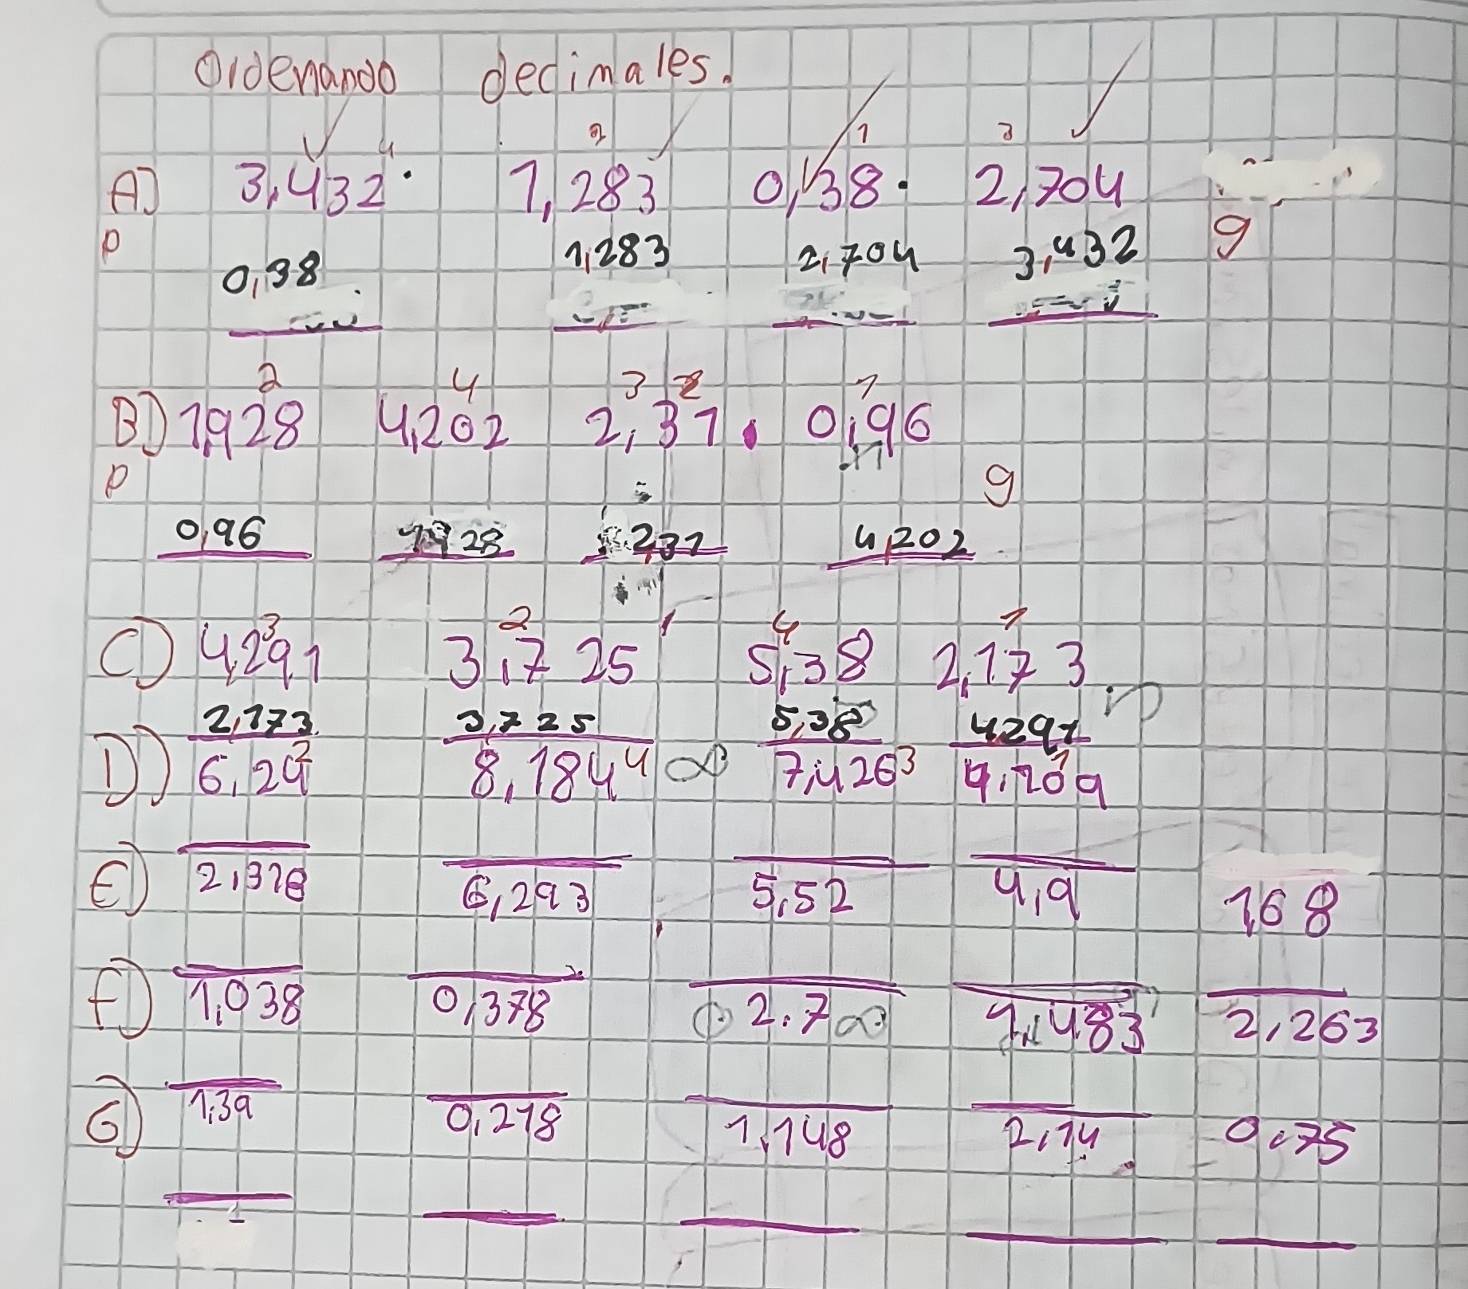 Ordenando decimales.
4 2 1 3
A) 3,432 1,283 0,38 2,704
p g
0,38 1,283 2,704 3,432
2 4 3 1
B) 1,928 4,202 2,31 0,96
p g
0,96 1928 2,31 4,202
3 2 4 1
C) 4,291 3,725 5,38 2,173
2,173 3,725 5,38 4,291
D) 6,29 2 8,184 4 7,426 3 4,209 1
E) 2,328 6,293 5,52 4,9 1,68
F) 1,038 0,378 2.7 1,483 2,263
G) 1,39 0,218 1,148 2,14 0,75